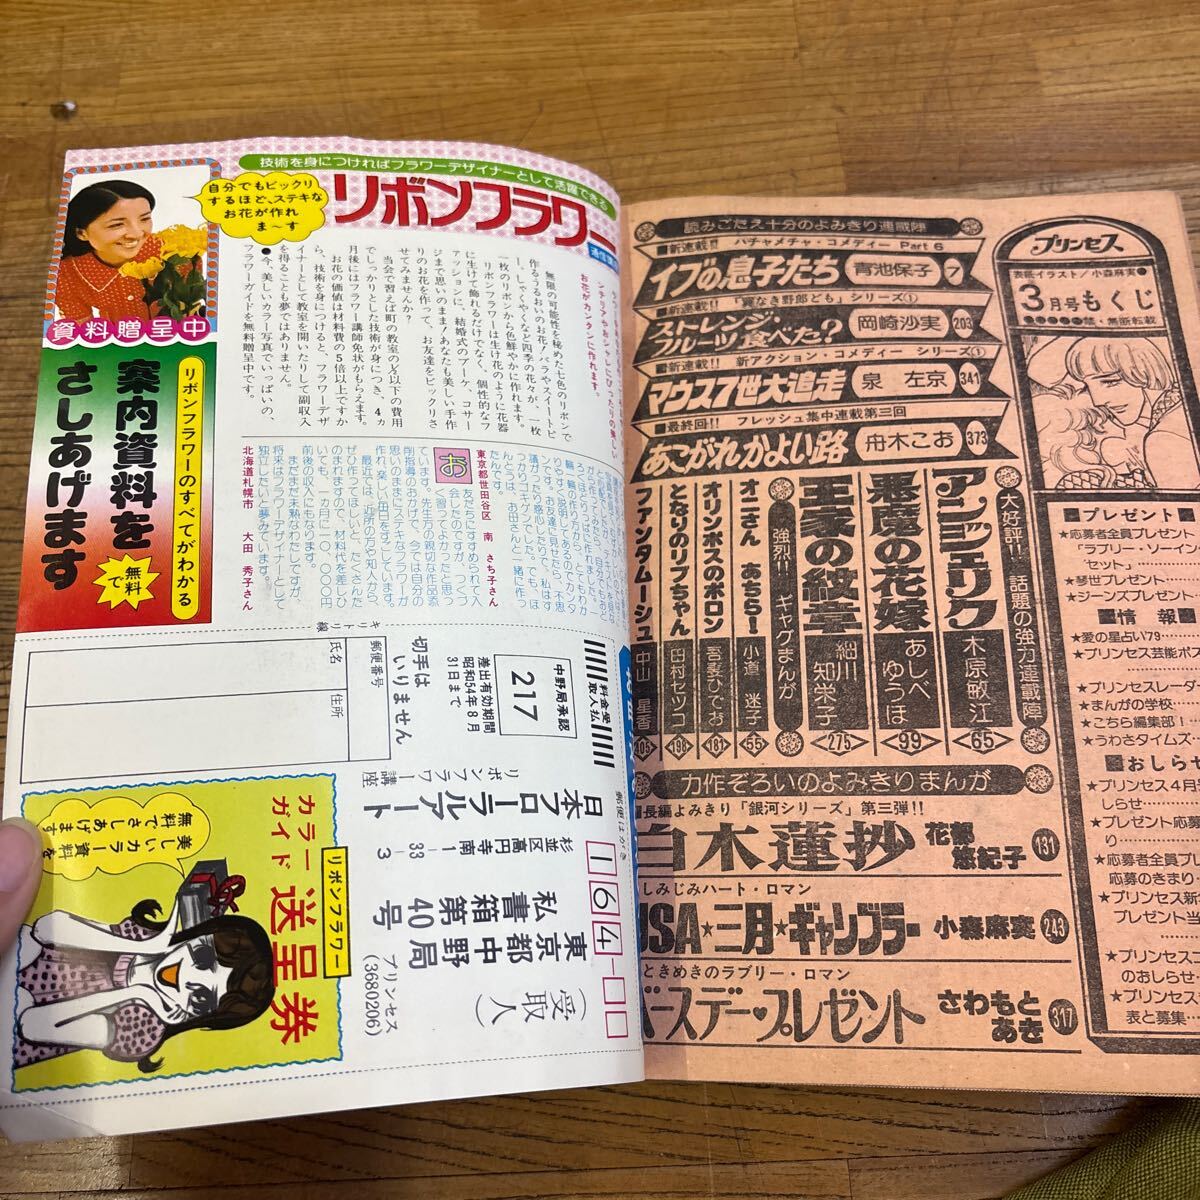 技術を身につければフラワーデザイナーとして活躍できる
リボンフラワー
自分でもビックリ
するほど、ステキな
お花が作れ
ま〜す
資料贈呈中
リボンフラワーのすべてがわかる
案内資料を
無料で
さしあげます
お花がカンタンに作れます。
無限の可能性を秘めた七色のリボンで
作るうるおいのお花！バラやスイートピ
ー。してくやなぎ四季の花々が、一枚
一枚のリボンから色鮮やかに作れます。
リボンフラワーは生け花のように花器
に生けて飾れるだけでなく、個性的なフ
ァッションに、結婚式のブーケ、コサー
ジまで思いのまま！あなたも美しい手作
りのお花を作って、お友達をビックリさ
せてみませんか？
当会で習えば町の教室の⅓以下の費用
でしっかりとした技術が身につき、4ヵ
月後にはフラワー講師免状がもらえます。
お花の価値は材料費の5倍以上ですか
ら、技術を身につけると、フラワーデザ
イナーとして教室を開いたりして副収入
を得ることも夢ではありません。
●今、美しいカラー写真でいっぱいの、
フラワーガイドを無料贈呈中です。
東京都世田谷区 南 さち子さん
お友だちにすすめられて入
会したのですが、つくづ
く習ってよかったと思っ
ています。先生方の親切な作品添
削指導のおかげで、今では自分の
思いのままにステキなフラワーが
作れ、楽しい毎日をすごしています。
最近では、近所の方や知人から、
ぜひ作ってほしいと、たくさんた
のまれますので、材料代を差しひ
いても、一カ月に一〇、〇〇〇円
前後の収入にもなります。
まだまだ未熟なわたしですが、
将来はフラワーデザイナーとして
独立したいと夢みています。
北海道札幌市 大田 秀子さん
キリトリ線
氏名
住所
郵便番号
切手は
いりません
差出有効期間
昭和54年8月
31日まで
中野局承認
217
料金受
取人払
郵便はがき
164-
東京都中野局
私書箱第40号
(受取人)
プリンセス
(368206)
杉並区高円寺南1-33-3
日本フローラルアート
リボンフラワー講座
リボンフラワー
カラーガイド
送呈券
美しいカラー資料を
無料でさしあげます
読みごたえ十分のよみきり連載陣
■新連載!! ハチャメチャ・コメディー Part 6
イブの息子たち 青池保子 7
■新連載!! 「翼なき野郎ども」シリーズ①
ストレンジ・フルーツ食べた? 岡崎沙実 203
■新連載!! 新アクション・コメディー シリーズ①
マウス7世大追走 泉 左京 341
■最終回!! フレッシュ集中連載第三回
あこがれかよい路 舟木こお 373
大好評!! 話題の強力連載陣
アンジェリク 木原敏江 65
悪魔の花嫁 あしべゆうほ 99
王家の紋章 細川知栄子 275
強烈!! ギャグまんが
オニさん あちら! 小道迷子 55
オリンポスのポロン 吾妻ひでお 181
となりのリブちゃん 田村セツコ 198
ファンタムーシュ 中山星香 405
力作ぞろいのよみきりまんが
長編よみきり「銀河シリーズ」第三弾!!
白木蓮抄 花郁悠紀子 131
しみじみハート・ロマン
USA★三月★ギャンブラー 小森麻実 243
ときめきのラブリー・ロマン
バースデー♥プレゼント さわもとあき 317
プリンセス
表紙イラスト/小森麻実●
3月号もくじ
禁・無断転載
■プレゼント■
★応募者全員プレゼント
「ラブリー・ソーイン
セット」
★琴世プレゼント
★ジーンズプレゼント
■情報■
★愛の星占い'79
★プリンセス芸能ポス
★プリンセスレーダー
★まんがの学校
★こちら編集部!
★うわさタイムズ
■おしらせ
★プリンセス4月
しらせ
★プレゼント応募
り
★応募者全員プレ
応募のきまり
★プリンセス新
プレゼント当
★プリンセスコ
のおしらせ
★プリンセス
表と募集